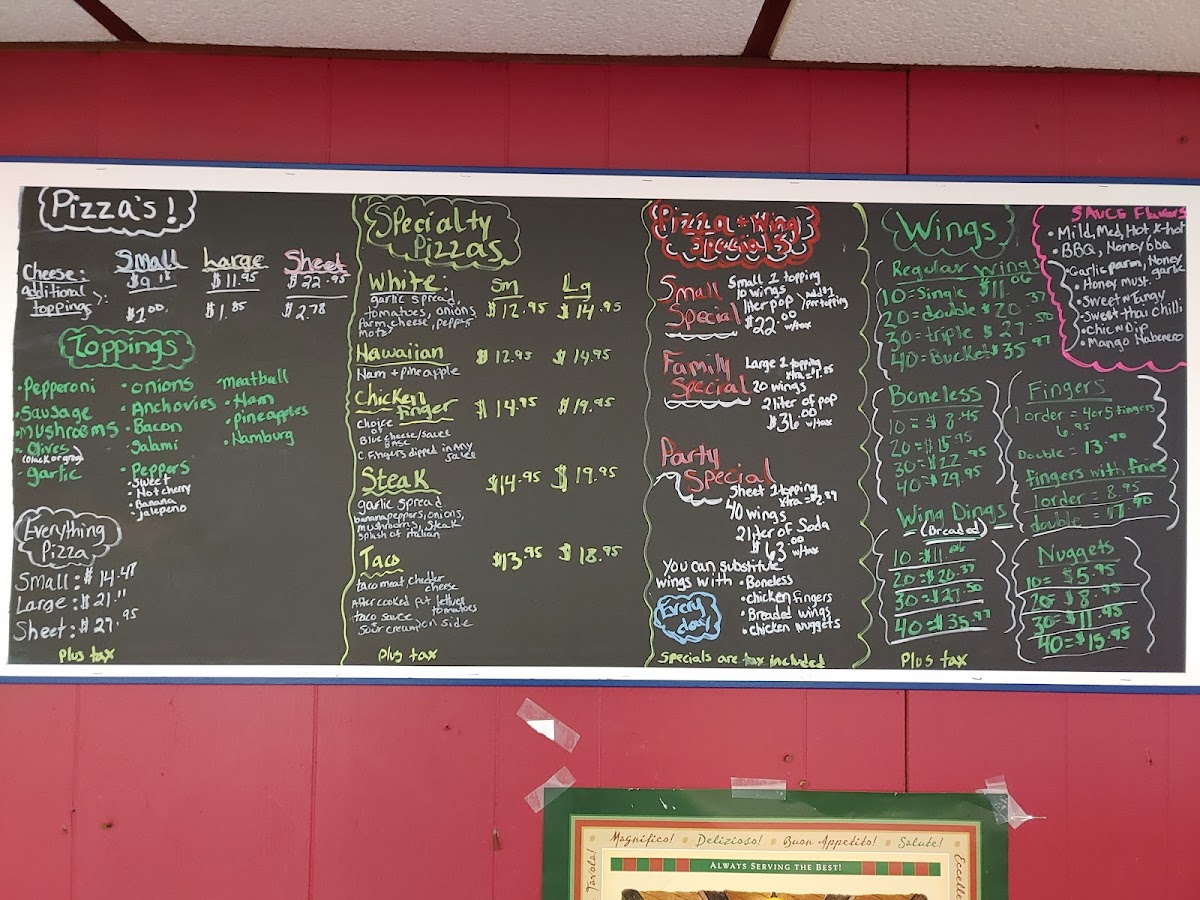 Pizza's!
Small Large Sheet
Cheese: $9.18 $11.95 $22.95
additional
topping: $1.00. $1.85 $2.78
Toppings
•Pepperoni
•Sausage
•Mushrooms
•Olives
(black or green)
•garlic
•onions
•Anchovies
•Bacon
•Salami
•Peppers
•Sweet
•Hot cherry
•Banana
•Jalepeno
•Meatball
•Ham
•Pineapples
•Hamburg
Everything
Pizza
Small: $14.47
Large: $21.11
Sheet: $27.95
Plus tax
Specialty
Pizzas
Sm Lg
White: $12.95 $14.95
garlic spread,
tomatoes, onions
Parm cheese, pepper
motz
Hawaiian $12.95 $14.95
Ham + pineapple
Chicken
finger $14.95 $19.95
Choice
of
Blue cheese/sauce
BASE
C. Fingers dipped in ANY
sauce
Steak $14.95 $19.95
garlic spread
banana peppers, onions,
mushrooms, steak
splash of italian
Taco $13.95 $18.95
taco meat, chedder
cheese
After cooked put lettuce
tomatoes
taco sauce
sour cream on side
Plus tax
Pizza + Wing
Specials
Small
Special
Small 1 topping
10 wings
1 liter pop
$22.00
w/tax
Family
Special
Large 1 topping
xtra = $1.85
20 wings
2 liter of pop
$36.00
w/tax
Party
Special
Sheet 1 topping
40 wings
2 liter of Soda
$63.00
w/tax
You can substitute
wings with • Boneless
• chicken fingers
• Breaded wings
• chicken nuggets
Every
day
Specials are tax included
Wings
Regular Wings
10=Single $11.06
20=double $20.37
30=triple $27.50
40=Bucket $35.97
Boneless
10=$8.45
20=$15.95
30=$22.95
40=$29.95
Wing Dings
(Breaded)
10=$11.06
20=$20.37
30=$27.50
40=$35.97
Plus tax
SAUCE Flavors
•Mild, Med, Hot X-hot
•BBQ, Honey bbq
•Garlic parm, Honey
garlic
•Honey must.
•Sweet n tangy
•Sweet thai chilli
•Chic n Dip
•Mango Habenero
Fingers
1 order = 4 or 5 fingers
6.95
Double = 13.90
fingers with fries
1 order = 8.95
double = 17.90
Nuggets
10=$5.95
20=$8.95
30=$11.95
40=$15.95
Magnifico! Delizioso! Buon Appetito! Salute!
ALWAYS SERVING THE BEST!
Tavola!